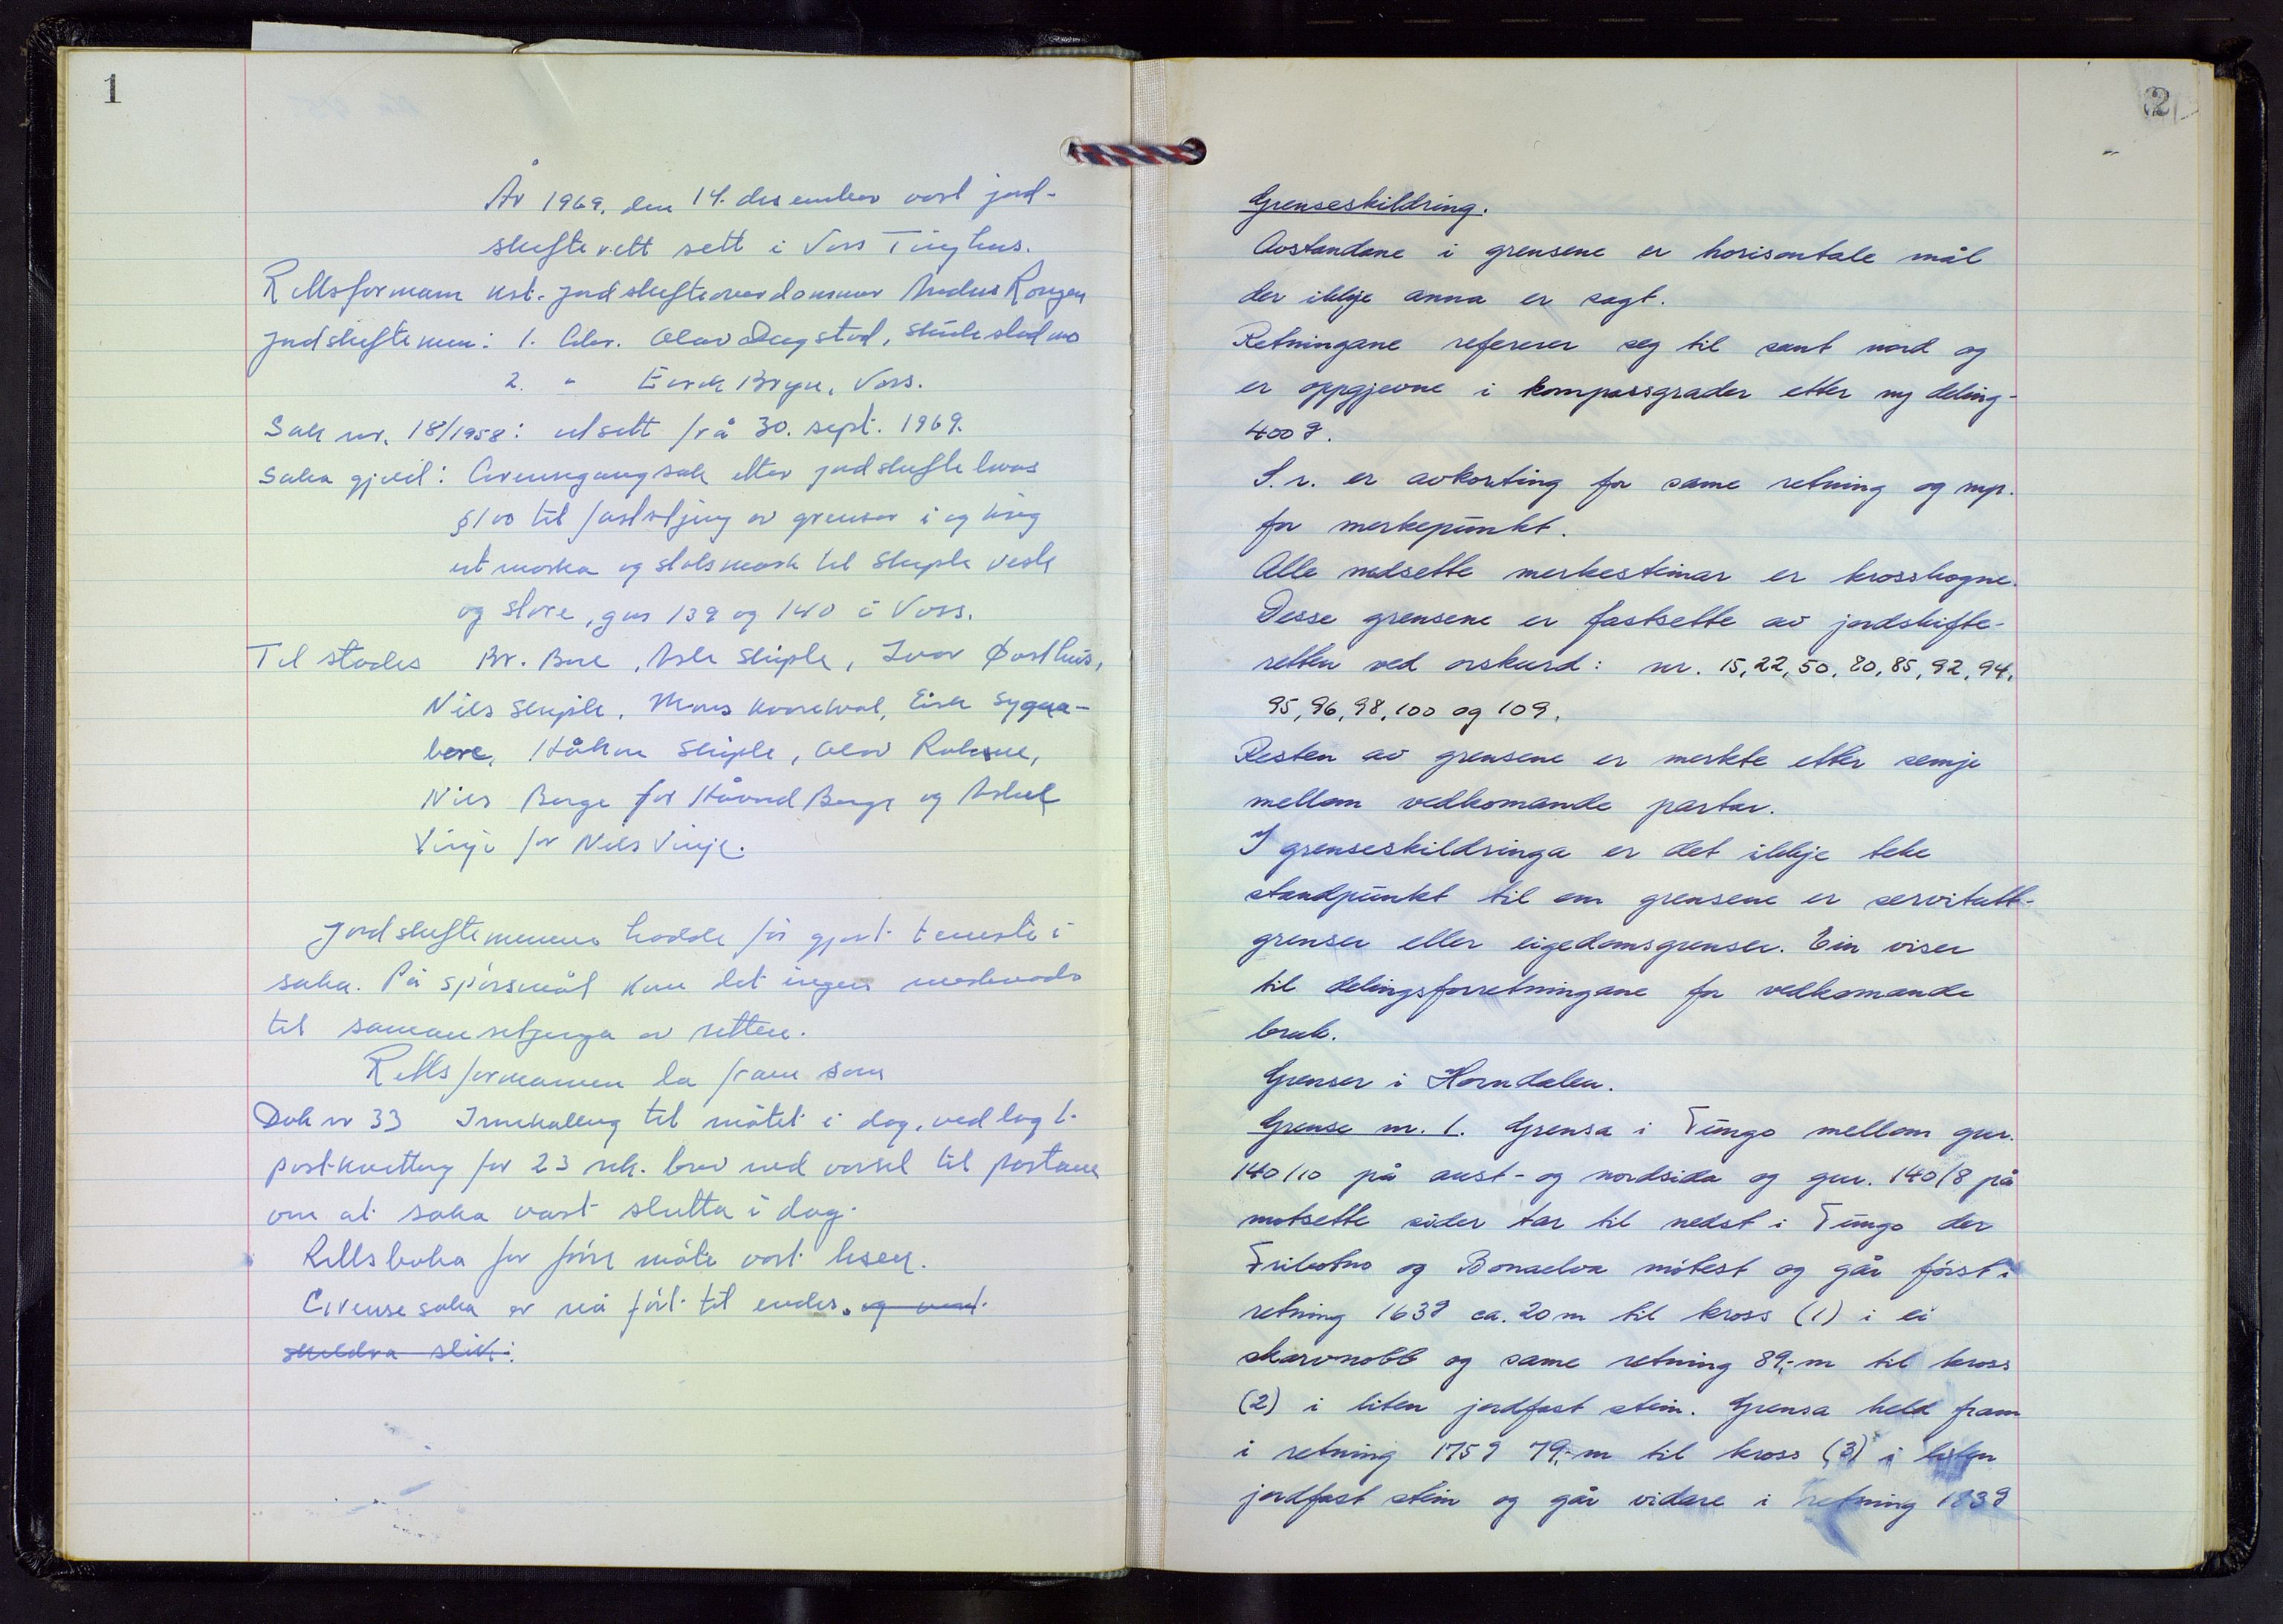 1
År 1969, den 14. desember vart jord-
skifterett sett i Voss Tinghus.
Rettsformann kst. jordskifteoverdommar Anders Rongen
Jordskiftemenn: 1. Gbr. Olav Dugstad,
2. " Eirik Bryn, Voss.
Sak nr. 18/1958: utsett frå 30. sept. 1969.
Saka gjeld: Grensegangsak etter jordskiftelova
§ 100 til fastsetjing av grenser i og kring
utmarka og stølsmark til Skiple vesle
og store, gnr 139 og 140 i Voss.
Til stades Br. Bore, Asle Skiple, Ivar Østhus,
Nils Skiple, Mons Kvarekval, Eirik Sygna-
bere, Håkon Skiple, Olav Rokne,
Nils Berge for Håvard Berge og
Vinje for Nils Vinje.
Jordskiftemennene hadde før gjort teneste i
saka. På spørsmål kom det ingen merknader
til samansetjinga av retten.
Rettsformannen la fram som
Dok nr 33 Innkalling til møtet i dag, vedlagt
postkvittering for 23 rek. brev med varsel til partane
om at saka vart slutta i dag.
Rettsboka for førre møte vart lesen.
Grensesaka er nå ført til endes. og vart
skildra slik:
2
Grenseskildring.
Avstandane i grensene er horisontale mål
der ikkje anna er sagt.
Retningane refererer seg til sant nord og
er oppgjevne i kompassgrader etter ny deling -
400 g.
S.r. er avkorting for same retning og mp.
for merkepunkt.
Alle nedsette merkesteinar er krosshogne.
Desse grensene er fastsette av jordskifte-
retten ved orskurd: nr. 15, 22, 50, 80, 85, 92, 94,
95, 96, 98, 100 og 109.
Resten av grensene er merkte etter semje
mellom vedkomande partar.
I grenseskildringa er det ikkje teke
standpunkt til om grensene er servitutt-
grenser eller eigedomsgrenser. Ein viser
til delingsforretningane for vedkomande
bruk.
Grenser i Horndalen.
Grense nr. 1. Grensa i Tungo mellom gnr.
140/10 på aust- og nordsida og gnr. 140/8 på
motsette sider tar til nedst i Tungo der
og Bonaelva møtest og går først i
retning 163g ca. 20 m til kross (1) i ei
skarvnobb og same retning 89,- m til kross
(2) i liten jordfast stein. Grensa held fram
i retning 175g 79,- m til kross (3) i liten
jordfast stein og går vidare i retning 183g